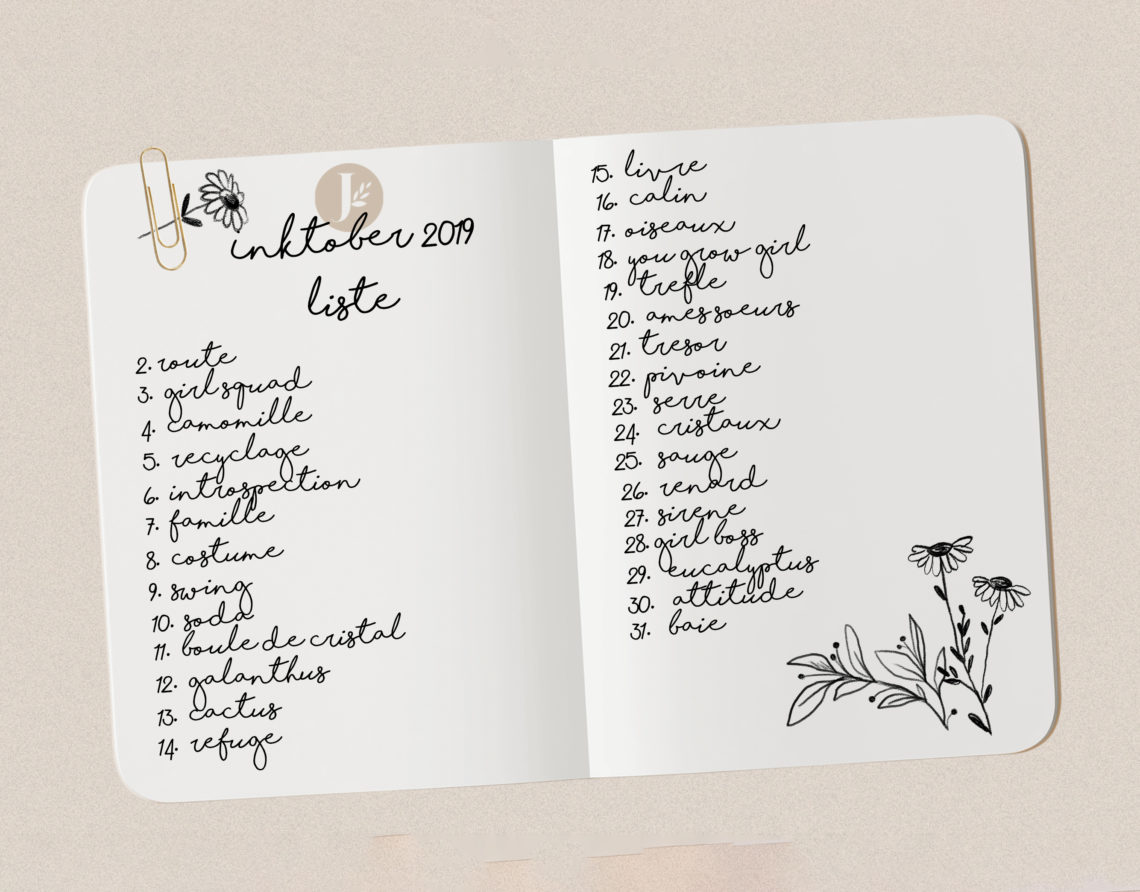 J
inktober 2019
liste
2. route
3. girl squad
4. camomille
5. recyclage
6. introspection
7. famille
8. costume
9. swing
10. soda
11. boule de cristal
12. galanthus
13. cactus
14. refuge
15. livre
16. calin
17. oiseaux
18. you grow girl
19. trefle
20. ames soeurs
21. tresor
22. pivoine
23. serre
24. cristaux
25. sauge
26. renard
27. sirene
28. girl boss
29. eucalyptus
30. attitude
31. baie